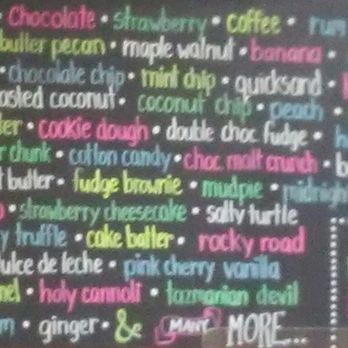 • Chocolate • strawberry • coffee • rum
butter pecan • maple walnut • banana •
• chocolate chip • mint chip • quicksand •
asted coconut • coconut chip • peach •
er • cookie dough • double choc fudge •
r chunk • cotton candy • choc malt crunch • b
t butter • fudge brownie • mudpie • midnight
• strawberry cheesecake • salty turtle
y truffle • cake batter • rocky road
ulce de leche • pink cherry vanilla
nel • holy cannoli • tazmanian devil
m • ginger • & MANY MORE...